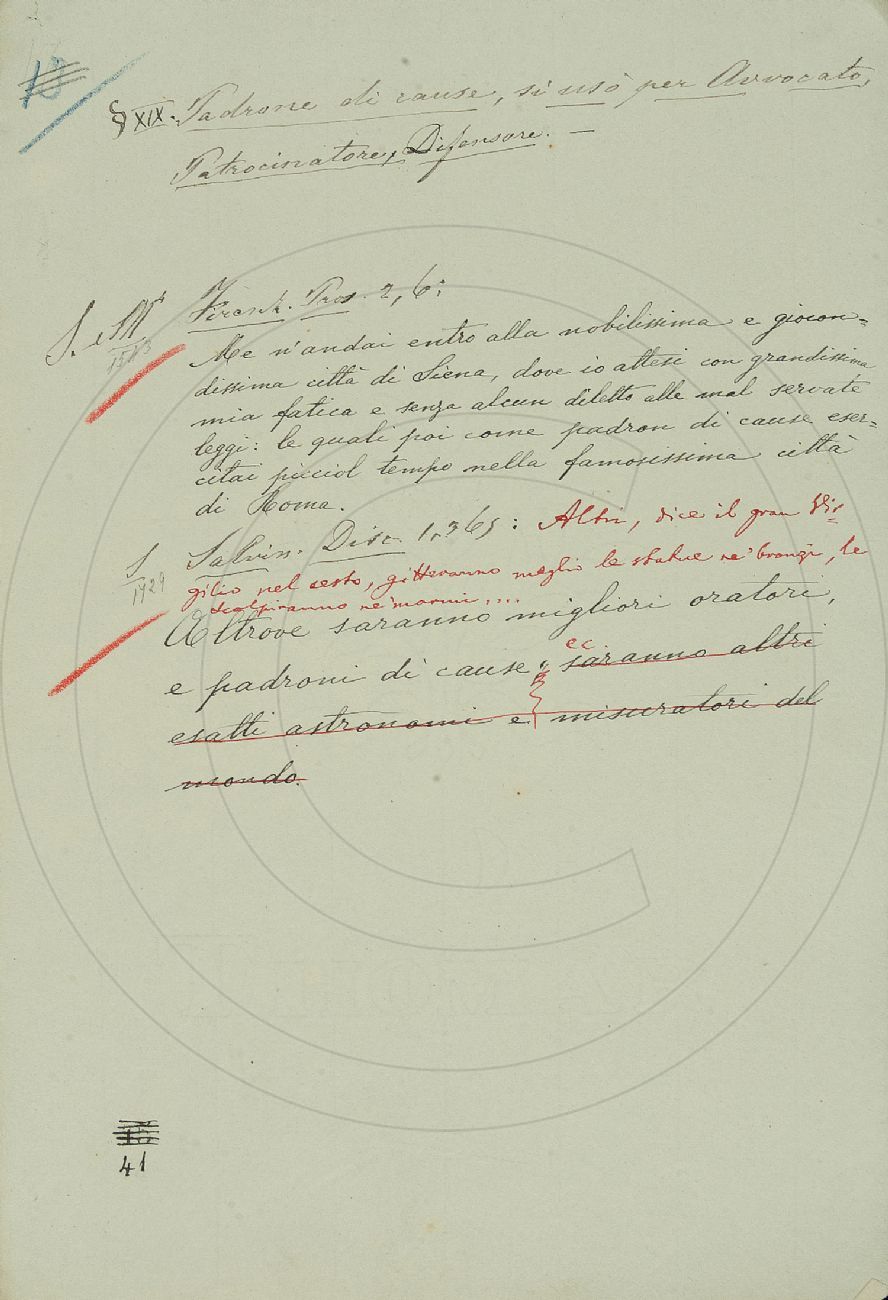 13
§ XIX. Padrone di cause, si usò per Avvocato,
Patrocinatore, Difensore. —
Firenz. Pros. 2, 6:
S. e
1543
Me n'andai entro alla nobilissima e giocon=
dissima città di Siena, dove io attesi con grandissima
mia fatica e senza alcun diletto alle mal servate
leggi: le quali poi come padron di cause eser=
citai picciol tempo nella famosissima città
di Roma.
S
1729
Salvin. Disc. 1, 365: Altri, dice il gran Vir=
gilio nel sesto, gitteranno meglio le statue ne' bronzi, le
scolpiranno ne' marmi....
Altrove saranno migliori oratori,
e padroni di cause, ec. saranno altri
esatti astronomi e misuratori del
mondo.
41